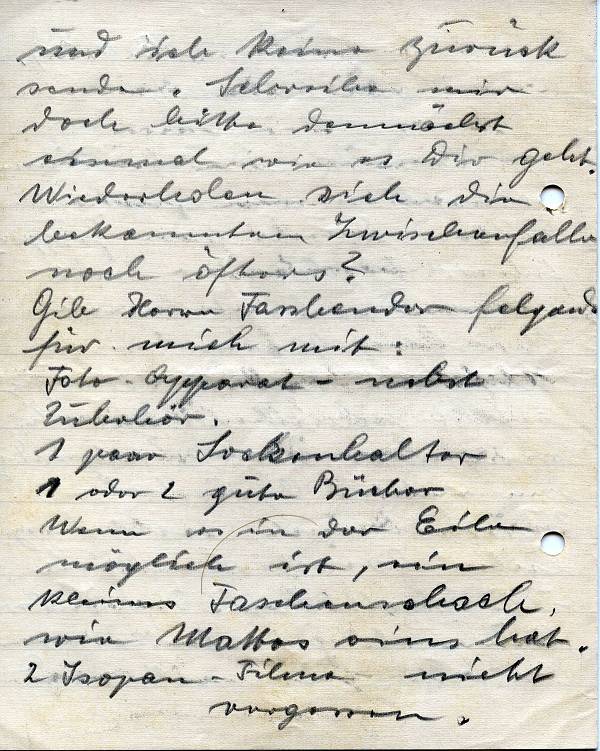 und ich keine zurück
sende. Schreibe mir
doch bitte demnächst
einmal wie es Dir geht.
Wiederholen sich die
bekannten Zwischenfälle
noch öfters?
Gib Herrn Fassbender folgende
für mich mit:
Foto-Apparat - nebst
Zubehör.
1 paar Sockenhalter
1 oder 2 gute Bücher
Wenn es in der Eile
möglich ist, ein
kleines Taschenschach,
wie Mattes eins hat.
2 Isopan-Filme nicht
vergessen.